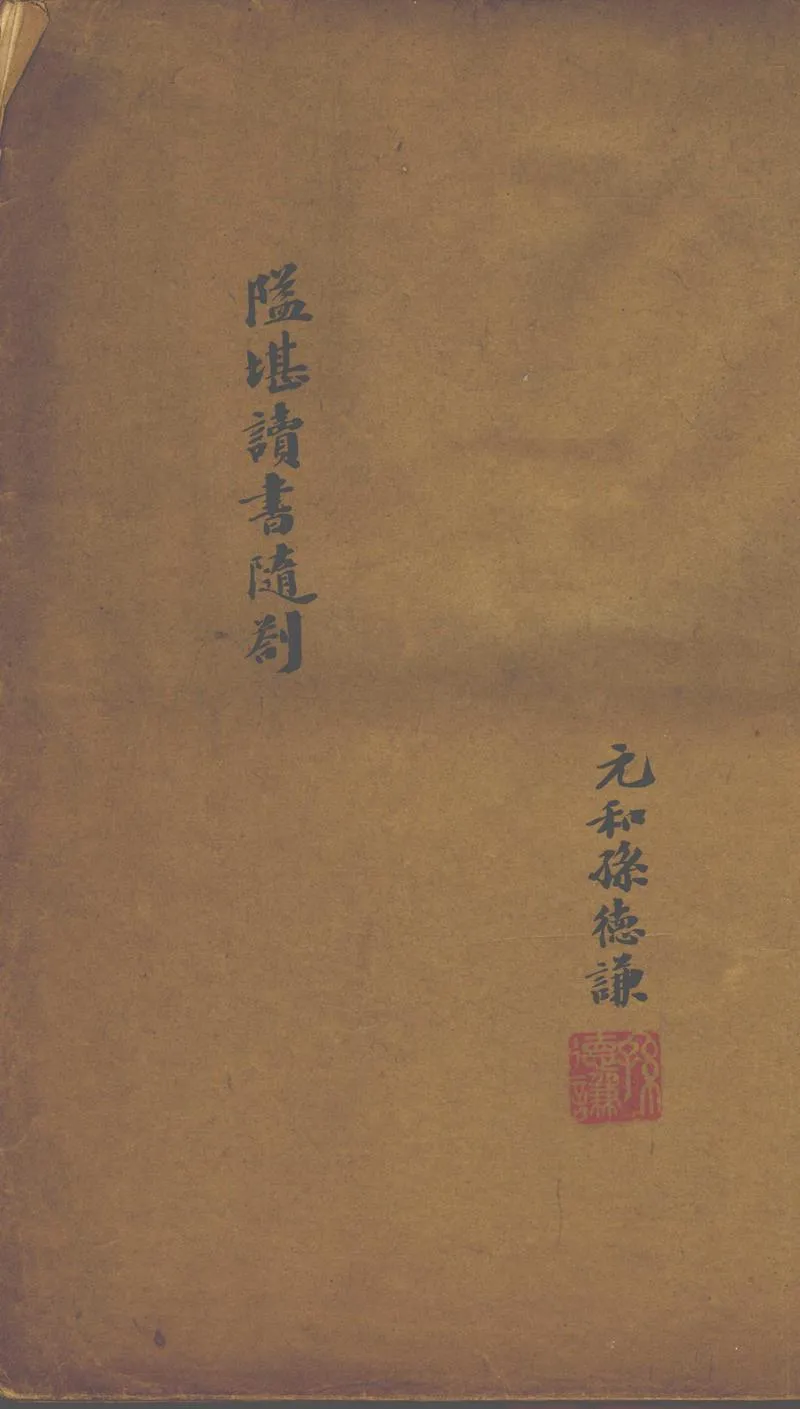 元和孫德謙
孫德謙
隘堪讀書隨剳